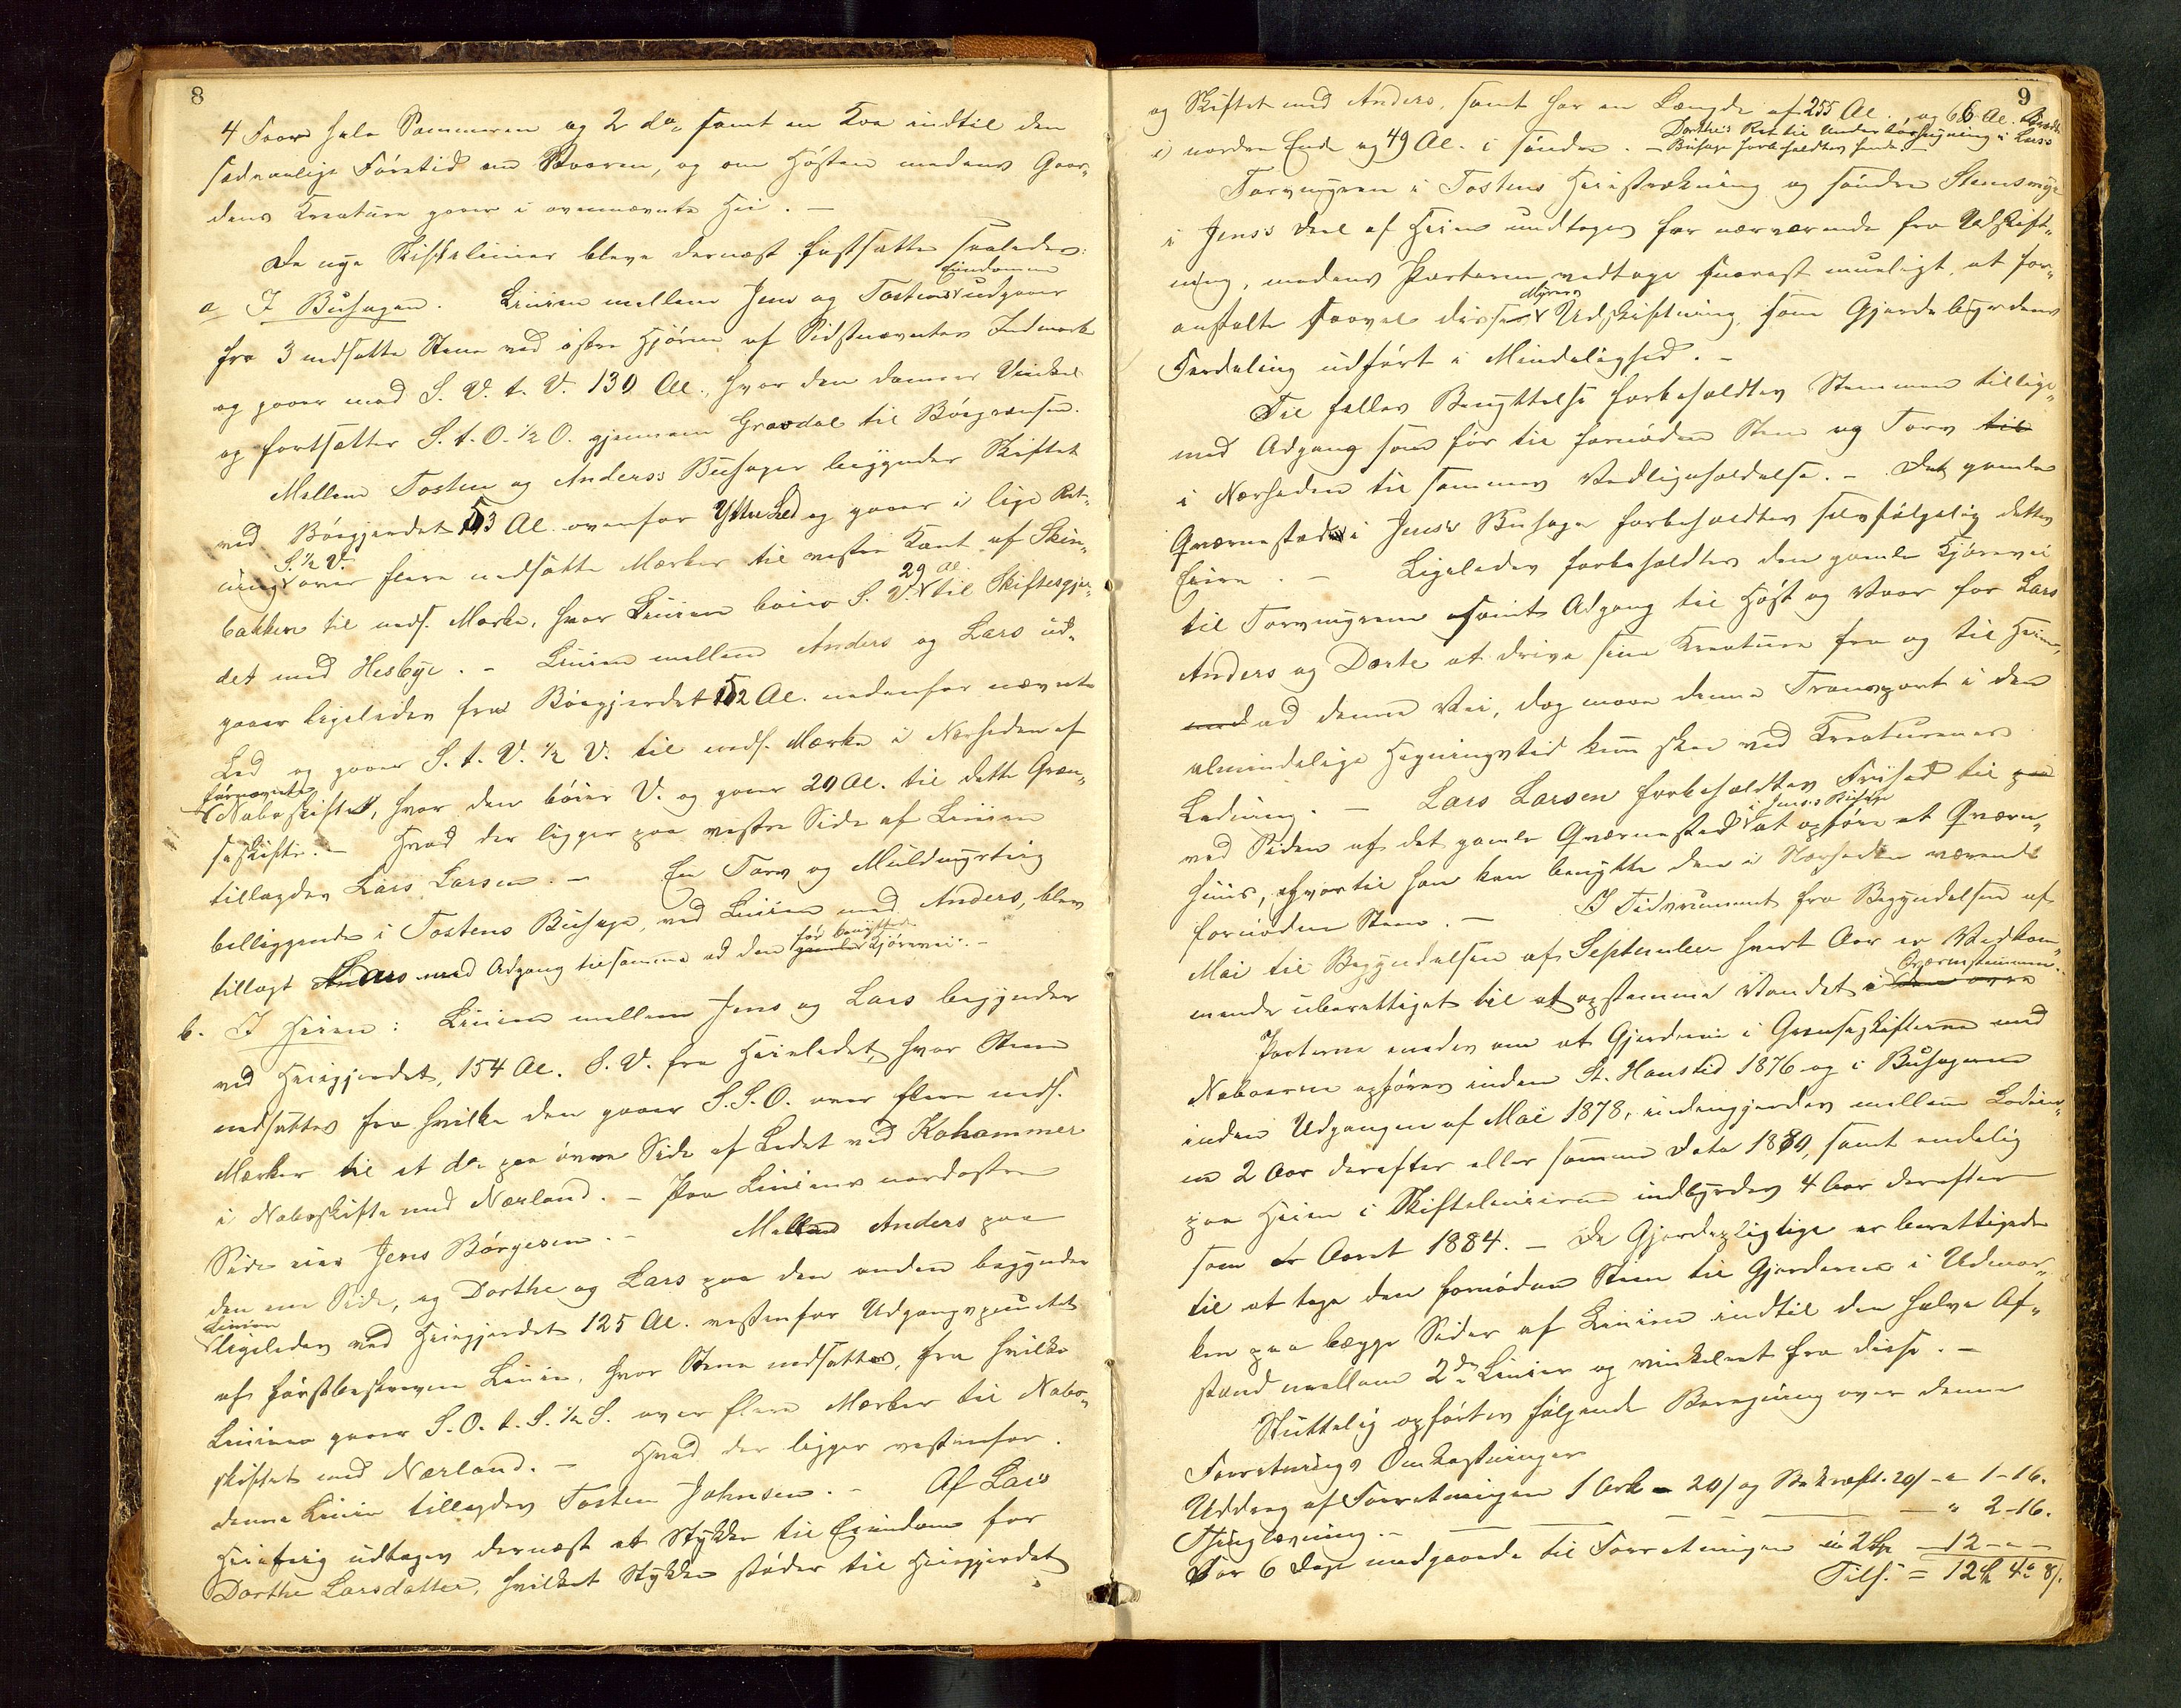 8
4 Faar hele Sommeren og 2 do samt en Koe indtil den
sædvanlige Føretid om Vaaren, og om Høsten medens Gaar-
dens Kreature gaaer i ovennævnte Hei. —
De nye Skiftelinier bleve dernæst fastsatte saaledes:
a I Buhagen. Linien mellem Jens og Tostens Eiendomme udgaaer
fra 3 nedsatte Stene ved østre Hjørne af Sidstnævntes Indmark
og gaaer mod S. V. t. V. 130 Al. hvor den danner Vinkel
og fortsætter S. t. O. ½ O. gjennem Gravdal til Bøegrænsen.
Mellem Tosten og Anders's Buhager begynder Skiftet
ved Bøegjerdet 53 Al. ovenfor Ytre Led og gaaer i lige Ret-
ning S. ½ V. over flere nedsatte Mærker til vestre Kant af Skin-
bakken til neds. Mærke, hvor Linien bøier S. V. 29 Al. til Skiftesgjer-
det med Hesbye. – Linien mellem Anders og Lars ud-
gaaer ligeledes fra Bøegjerdet 152 Al. nedenfor nævnte
Led og gaaer S. t. V. ½ V. til neds. Mærke i Nærheden af
førnævnte Naboskifte, hvor den bøier V. og gaaer 20 Al. til dette Græn-
seskifte. – Hvad der ligger paa vestre Side af Linien
tillagdes Lars Larsen. – En Torv og Muldmyrteig
beliggende i Tostens Buhage, ved Linien med Anders, blev
tillagt Lars med Adgang til samme ad den gamle før benyttede Kjørevei. –
b. I Heien: Linien mellem Jens og Lars begynder
ved Heiegjerdet, 154 Al. S. V. fra Heieledet, hvor Stene
nedsattes fra hvilke den gaaer S. S. O. over flere neds.
Mærker til et do paa øvre Side af Ledet ved Kohammer
i Naboskifte med Nærland. – Paa Liniens nordostre
Side eier Jens Børgesen. – Mellem Anders paa
den ene Side, og Dorthe og Lars paa den anden begynder
Linien ligeledes ved Heiegjerdet 125 Al. vestenfor Udgangspunctet
af førstbeskrevne Linie, hvor Stene nedsattes, fra hvilke
Linien gaaer S. O. t. S. ½ S. over flere Mærker til Nabo-
skiftet med Nærland. – Hvad der ligger vestenfor
denne Linie tillagdes Tosten Johnsen. – Af Lars
Heieteig udtages dernæst et Stykke til Eiendom for
Dorthe Larsdatter, hvilket Stykke støder til Heiegjerdet
9
og Skiftet med Anders, samt har en Længde af 255 Al., og 66 Al. Bredde
i nordre Ende og 49 Al. i søndre. — Dorthe's Ret til Underholdning i Lars's
Buhage forbeholdtes hende. —
Torvmyren i Tostens Heiestrækning og søndre Stemsmyr
i Jens's Deel af Heien undtages for nærværende fra Udskift-
ning, medens Parterne vedtage snarest mueligt, at for-
anstalte saavel disse Myrers Udskiftning som Gjerdebyrdens
Fordeling udført i Mindelighed. –
Til fælles Benyttelse forbeholdtes Stemmen tillige-
med Adgang som før til fornøden Sten og Torv til
i Nærheden til sammes Vedligeholdelse. – Det gamle
Qværnested i Jens's Buhage forbeholdtes selvfølgelig dettes
Eiere. – Ligeledes forbeholdtes den gamle Kjørevei
til Torvmyrene samt Adgang til Høst og Vaar for Lars
Anders og Dorte at drive sine Kreature fra og til Heien,
ad denne Vei, dog maa denne Transport i den
almindelige Hegningstid kun skee ved Kreaturenes
Ledning. – Lars Larsen forbeholdtes Frihed til paa
ved Siden af det gamle Qværnested i Jens's Buhage at opføre et Qværn-
huus, hvortil han kan benytte den i Nærheden værende
fornøden Sten. – I Tidsrummet fra Begyndelsen af
Mai til Begyndelsen af September hvert Aar er Vedkom-
mende uberettiget til at opstemme Vandet i den øvre Qværnstemmen.
Parterne enedes om at Gjerderne i Grænseskifterne med
Naboerne opføres inden St. Hanstid 1876 og i Buhagerne
inden Udgangen af Mai 1878, indengjerdes mellem Lodeier-
ne 2 Aar derefter eller samme Dato 1880, samt endelig
paa Heien i Skiftelinierne indbyrdes 4 Aar derefter
som er Aaret 1884. – De Gjerdepligtige er berettigede
til at tage den fornødne Sten til Gjerderne i Udmar-
ken paa begge Sider af Linien indtil den halve Af-
stand mellem 2de Linier og vinkelret fra disse. –
Sluttelig opførtes følgende Beregning over denne
Forretnings Omkostninger
Uddrag af Forretningen 1 Ark – 20/ og Bekræft. 20/ – „ 1–16.
Thinglæsning. – — — — — „ 2–16.
For 6 Dage medgaaede til Forretningen à 2 Sp – 12 – „ –
Tils. = 12 Sp 4 „ 8/.